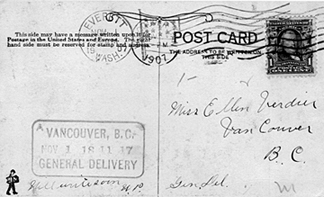 EVERETT
WASH.
1907
This side may have a message written upon it for
Postage in the United States and Europe. The right
hand side must be reserved for stamp and address.
POST CARD
THE ADDRESS TO BE WRITTEN ON
THIS SIDE
Miss Ellen Verdier
Van Couver
B.C.
Gen Del.
VANCOUVER, B.C.
NOV 1 18 11 17
GENERAL DELIVERY